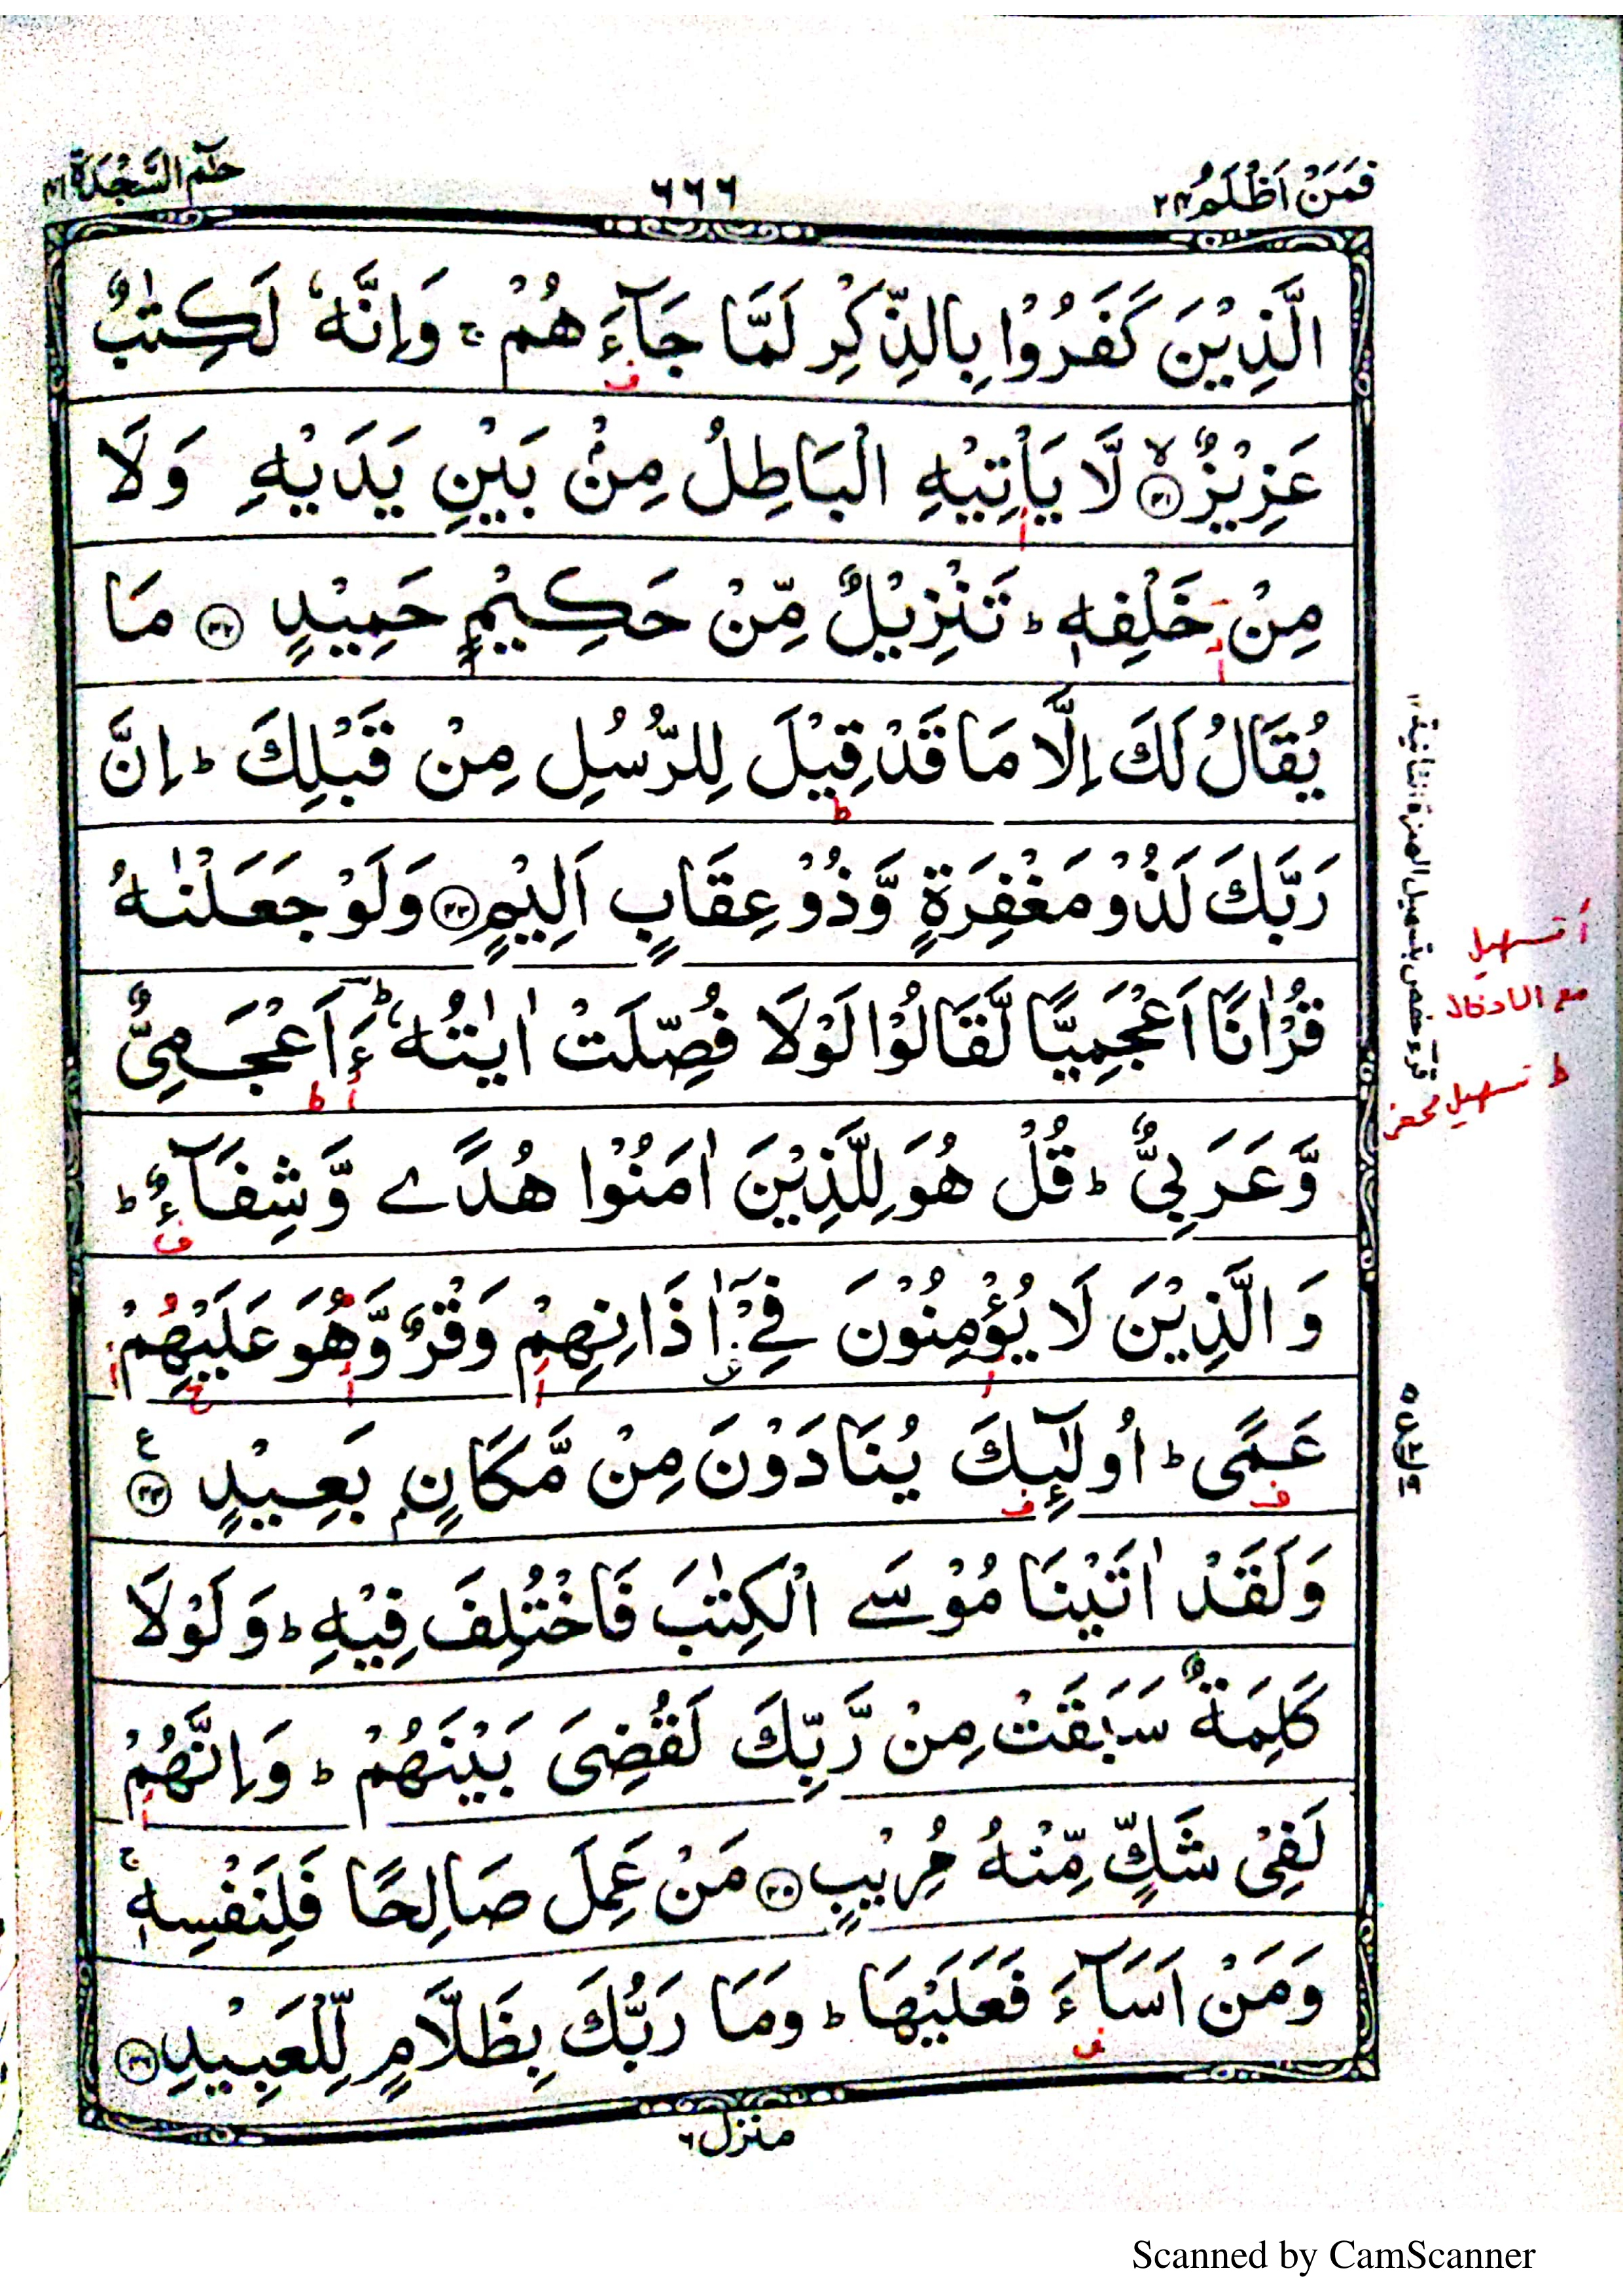 فَمَنْ اَظْلَمُ ٢٤
٦٦٦
حٰمٓ السَّجْدَة ٤١
الَّذِيْنَ كَفَرُوْا بِالذِّكْرِ لَمَّا جَآءَهُمْ ۚ وَاِنَّهٗ لَكِتٰبٌ
عَزِيْزٌ ۙ﴿٤١﴾ لَّا يَاْتِيْهِ الْبَاطِلُ مِنْۢ بَيْنِ يَدَيْهِ وَلَا
مِنْ خَلْفِهٖ ؕ تَنْزِيْلٌ مِّنْ حَكِيْمٍ حَمِيْدٍ ﴿٤٢﴾ مَا
يُقَالُ لَكَ اِلَّا مَا قَدْ قِيْلَ لِلرُّسُلِ مِنْ قَبْلِكَ ؕ اِنَّ
رَبَّكَ لَذُوْ مَغْفِرَةٍ وَّذُوْ عِقَابٍ اَلِيْمٍ ﴿٤٣﴾ وَلَوْ جَعَلْنٰهُ
قُرْاٰنًا اَعْجَمِيًّا لَّقَالُوْا لَوْلَا فُصِّلَتْ اٰيٰتُهٗ ؕ ءَاَعْجَمِيٌّ
وَّعَرَبِيٌّ ؕ قُلْ هُوَ لِلَّذِيْنَ اٰمَنُوْا هُدًے وَّشِفَآءٌ ؕ
وَالَّذِيْنَ لَا يُؤْمِنُوْنَ فِيْٓ اٰذَانِهِمْ وَقْرٌ وَّهُوَ عَلَيْهِمْ
عَمًى ؕ اُولٰٓئِكَ يُنَادَوْنَ مِنْ مَّكَانٍۭ بَعِيْدٍ ﴿٤٤﴾ ع
وَلَقَدْ اٰتَيْنَا مُوْسَے الْكِتٰبَ فَاخْتُلِفَ فِيْهِ ؕ وَلَوْلَا
كَلِمَةٌ سَبَقَتْ مِنْ رَّبِّكَ لَقُضِىَ بَيْنَهُمْ ؕ وَاِنَّهُمْ
لَفِىْ شَكٍّ مِّنْهُ مُرِيْبٍ ﴿٤٥﴾ مَنْ عَمِلَ صَالِحًا فَلِنَفْسِهٖ ۚ
وَمَنْ اَسَآءَ فَعَلَيْهَا ؕ وَمَا رَبُّكَ بِظَلَّامٍ لِّلْعَبِيْدِ ﴿٤٦﴾
منزل ٦
أ تسهيل
مع الادخال
ط تسهيل محض
Scanned by CamScanner